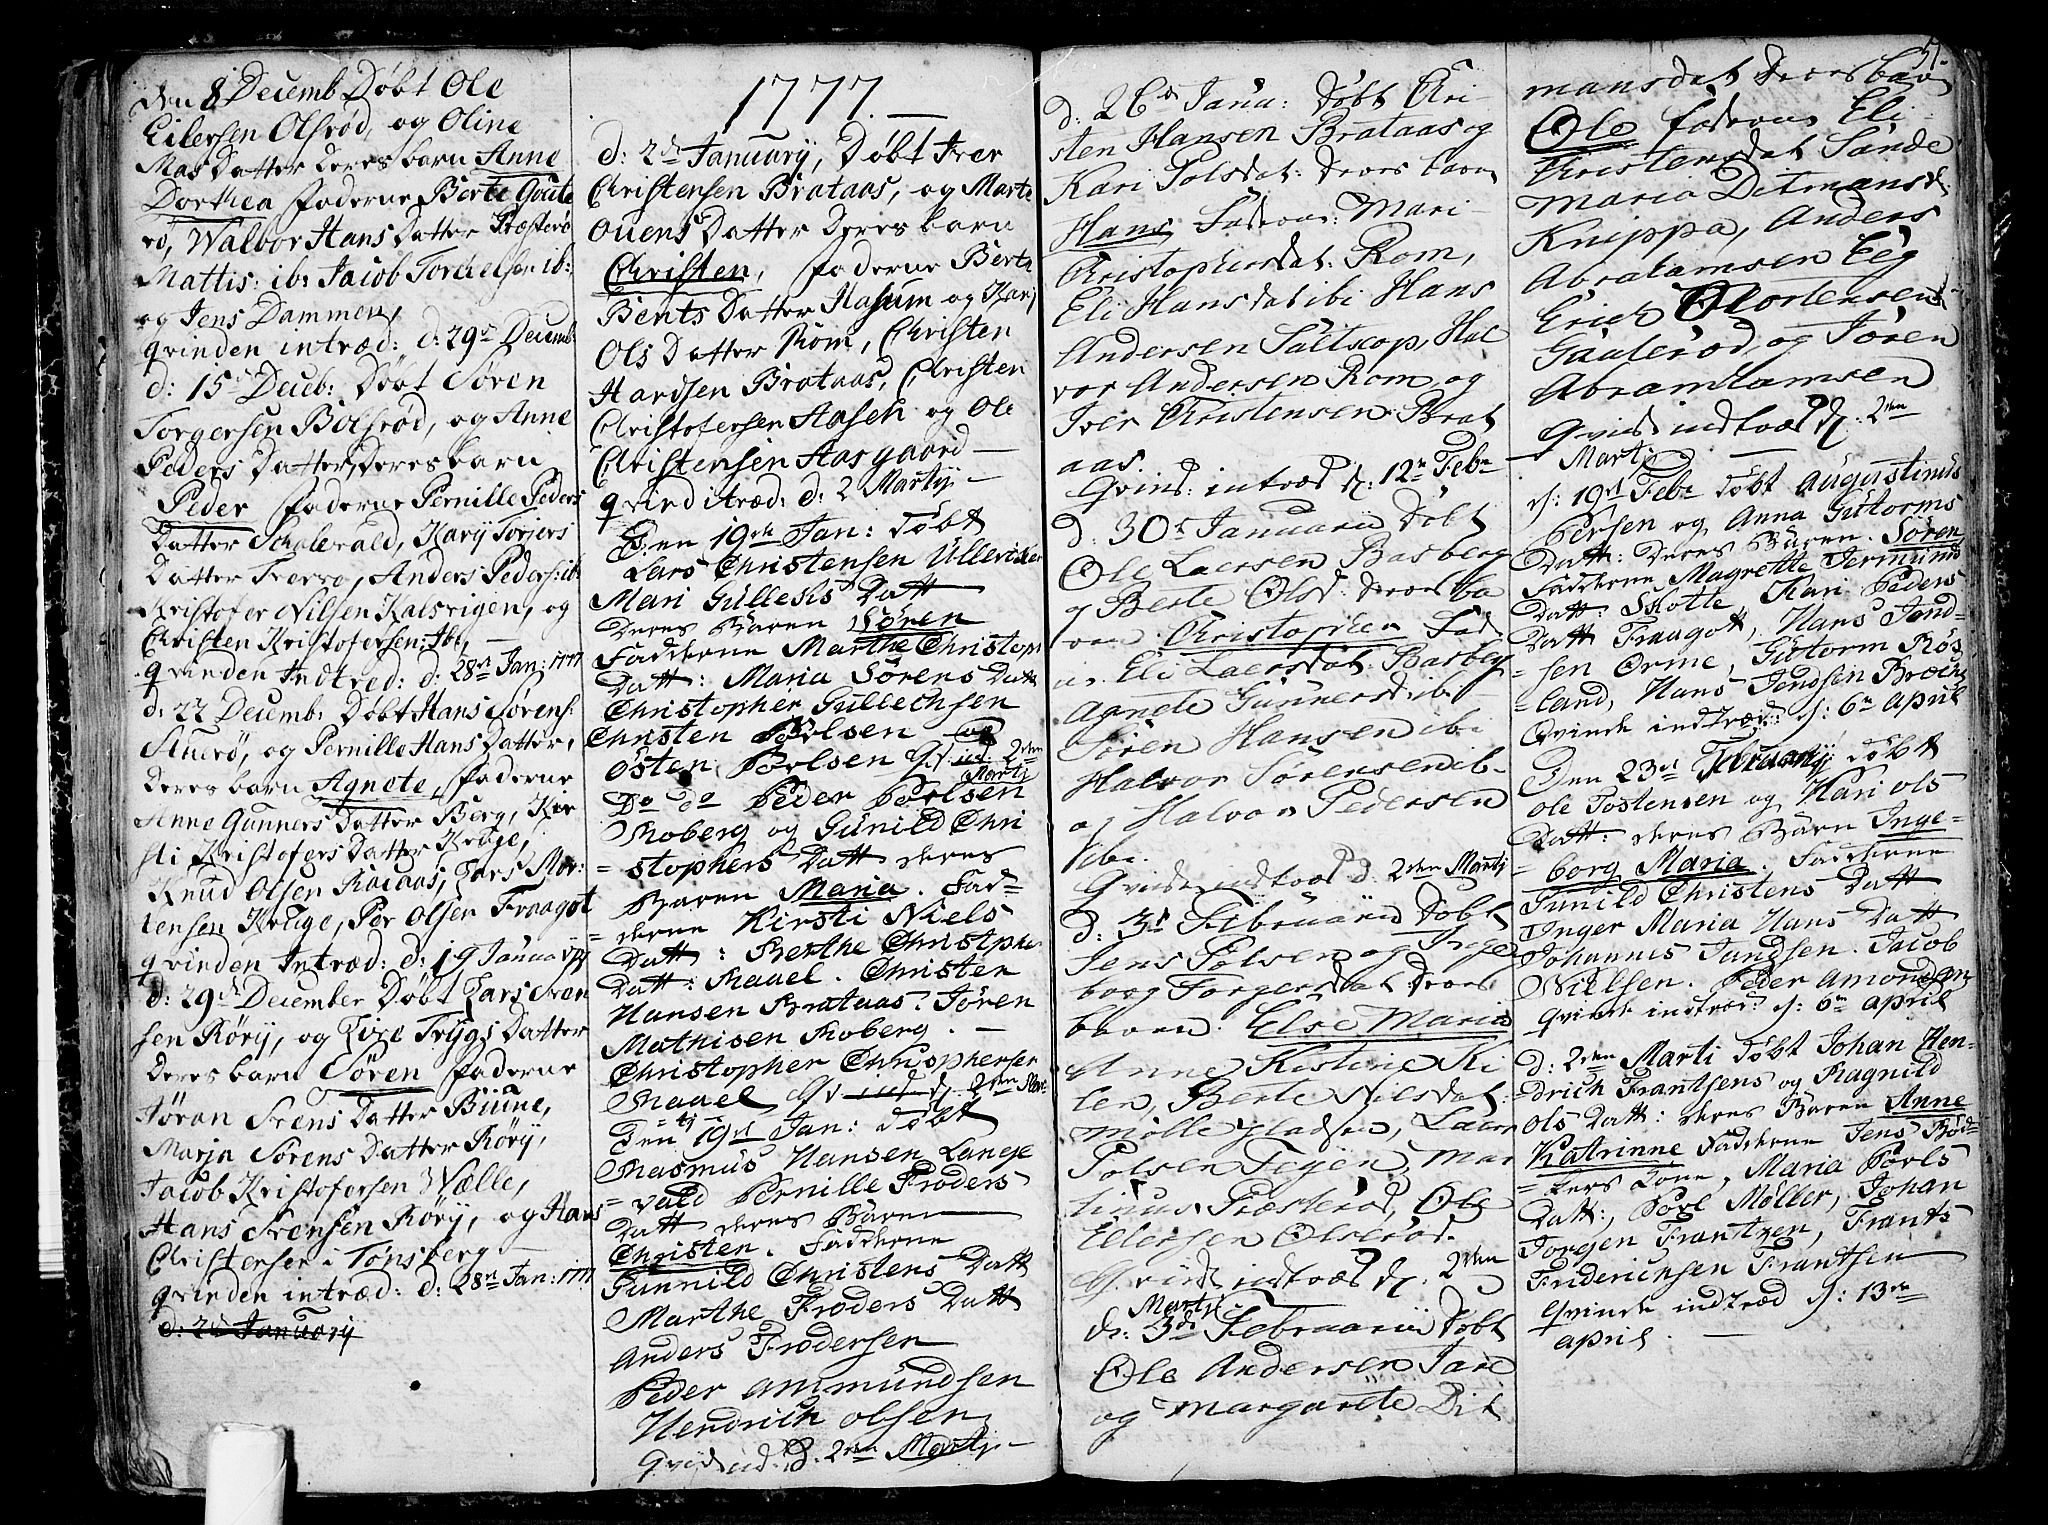 Den 8 Decemb Døbt Ole
Eilersen Olsrød, og Oline
Mas Datter deres barn Anne
Dorthea faderne Berte Goute
rø, Walbor Hans Datter Præsterø
Mattis: ib: Jacob Torckelsen ib:
og Jens Dammen,
qvinden intræd: d: 29de Decemb
d: 15de Deceb: Døbt Søren
Torgersen Bolsrød, og Anne
Peders Datter, Deres barn
Peder faderne Pernille Peders
Datter Scholevald, Karij Torjers
Datter Frerrø, Anders Peders: ib:
Kristofer Nilsen Kalsvigen, og
Christen Kristofersen: Ibi,
qvinden Indtred: d: 28de Jan: 1777
d: 22 Decemb: Døbt Hans Sørens:
og Pernille Hans Datter,
deres barn Agnete, faderne
Anne Gunners Datter Berg, Kir
sti Kristofers Datter Kruge,
Knud Olsen Raeaas, Lars Mor:
tensen Kruge, Per Olsen Fraagot
qvinden Intræd: d: 19 Januarij
d: 29de December Døbt Lars Iven
sen Rørij, og Live Trygs Datter
deres barn Søren faderne
Jøran Ivens Datter Biüne,
Marja Sørens Datter Rørij,
Jacob Kristofersen Wælle,
Hans Ivensen Rørij, og Hans
Christensen i Tønsberg
qvinden intræd: d: 28de Jan: 1777
d: 2d January
1777.
d: 2de Januarij, Døbt Iver
Christensen Brataas, og Marte
Ouens Datter deres barn
Christen, faderne Berte
Bents Datter Hasum og Karj
Ols Datter Rom, Christen
Hansen Brataas, Christen
Christofersen Aaseh og Ole
Christensen Aasgaard
qvind itræd: d: 2 Martij
Den 19de Jan: døbt
Lars Christensen Ulleviker
Mari Gullechs Datt
Deres Baren Søren
Fadderne Marthe Christoph
Datt: Maria Sørens Datt
Christopher Gullechsen
Christen Povlsen og
Østen Povlsen Qv: ind 2den
Martj
Do do Peder Povlsen
Moberg og Gunild Chri
=stophers Datt deres
Baren Maria. Fad=
=derne Kirsti Niels
Datt: Berthe Christpher
Datt: Raael. Christen
Hansen Brataas. Søren
Mathisen Roberg.
Christopher Chrisphersen
Raael, Qv ind d: 2den Mar:
=tj
Den 19de Jan: døbt
Rasmus Hansen Lange
=vald Pernille Froders
Datt deres Baren
Christen. Fadderne
Gunnild Christens Datt
Marthe Froders Datt
Anders Frodersen
Peder Ammundsen
Hendrich Olsen
Qvid ind: d. 2den Martj
d: 26de Janu: døbt Kri-
sten Hansen Brataas og
Kari Polsdat: deres barn
Hans Faderne: Mari-
Kristophersdat: Rom,
Eli Hansdat ibi Hans
Andersen Saltkop, Hal
vor Andersen Rom, og
Iver Kristensen Brat
aas.
Qvind: intræd d: 12te Febr
d: 30te Januarii døbt
Ole Laersen Basberg
og Berte Olsd: deres ba
ren Christopher Fad
Eli Laersdat: Basberg
Agnete Gunnersd ibi
Søren Hansen ibi
Halvor Sørensen ib-
og Halvor Pedersen
ibi.
Qvinde indtræd d. 2den Martj
d: 3de Februarii døbt
Jens Polsen og Inge
borg Torgersdat deres
baren. Else Maria
Anne Kistine Ki
len, Berte Nilsdat:
Mølle Laurs
Polsen Tejen, Mar
tinus Præsterød, Ole
Eilersen Olserød.
Qvind indtræd d: 2den
Martj
d: 3de Februarii døbt
Ole Andersen Jare
og Margarete Dit
51.
mansdat deres barn
Ole faderne Eli-
Christensdat Sande
Maria Ditmansd:
Knippa, Anders
Abrahamsen Eeg
Erich Mortensen
Gaaserød, og Søren
Abramhamsen
Qvind indtræd d: 2den
Martj
d: 19de Febr døbt Augustinus
Persen og Anna Gutorms
Datt: Deres Baren. Søren
Fadderne Magrethe Jermunds
Datt: Skotte, Kari Peders
Datt Fraagott, Hans Jend-
=sen Orme, Gutorm Røs
=land, Hans Jendsen Bræche
Qvinde indtræd: d: 6te April
Den 23de Februarij døbt
Ole Tostensen og Kari Ols
Datt: deres Barn Inge-
=borg Maria. Fadderne
Gunild Christens Datt
Inger Maria Hans Datt
Johannis Jandsen. Jacob
Nielsen. Peder Amondsen
Qvinde indtræd: d: 6te April
d: 2den Marti døbt Johan Hen-
drich Frantsens og Ragnild
Ols Datt: deres Baren Anne
Katrinne Fadderne Jens Bød-
=kers Kone, Maria Povls
Datt:, Povl Møller, Johan
Jorgen Frantzen, Frants
Friderichsen Frantsen
Qvinde indtræd d: 13de
April.